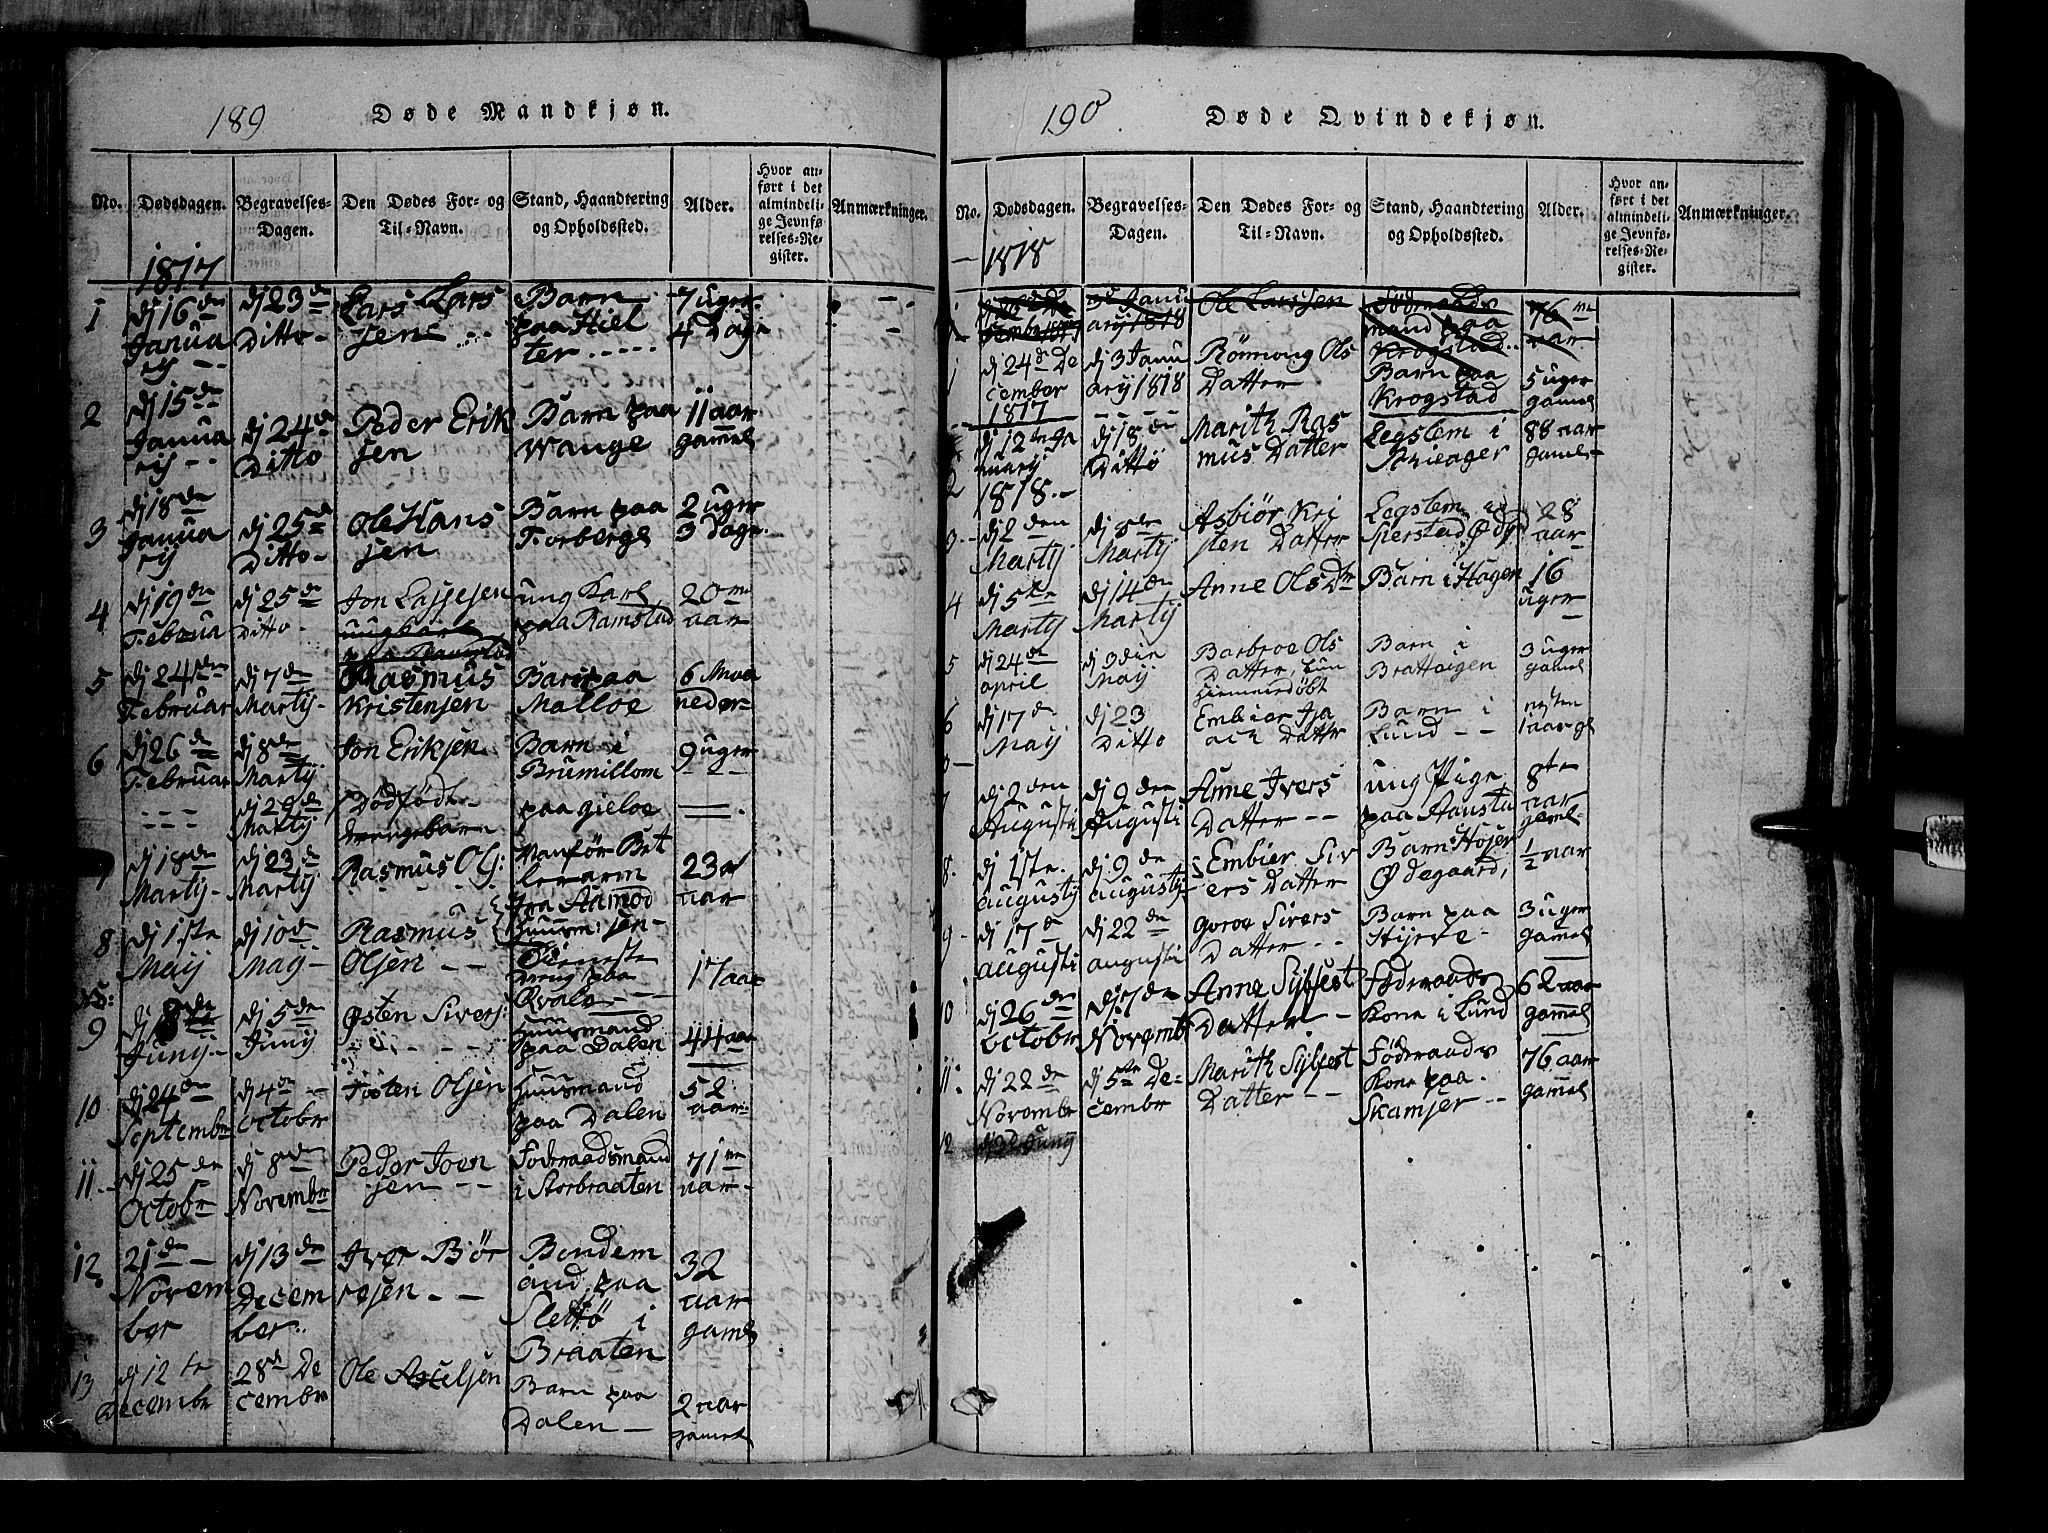 189 Døde Mandkjøn.
No. Dødsdagen. Begravelses-Dagen. Den Dødes For- og Til-Navn. Stand, Haandtering og Opholdssted. Alder. Hvor anført i det almindelige Jevnførelses-Register. Anmærkninger.
1817
1 dj 16de Januarij dj 23de Ditto Lars Larssen Barn paa Hielter 7 uger 4 Dage
2 dj 15de Januarij dj 24de Ditto Peder Eriksen Barn paa Wange 11 aar gammel
3 dj 18de Januarij dj 25de Ditto Ole Hansen Barn paa Forberge 2 uger 3 Dage
4 dj 19de Februa dj 25de Ditto Jon Lassesen ung Karl paa Ramstad 20 aar
5 dj 24de Februar dj 7de Martij Rasmus Kristensen Barn paa Malloe 6 Maaneder
6 dj 26de Februar dj 8de Martij Jon Eriksen Barn i Brumillom 9 uger
dj 29de Martij Dødfødt drengebarn paa gieloe
7 dj 18de Martij dj 23de Martij Rasmus Ols: fra Aamod 23 aar
8 dj 1ste Maij dj 10de Maij Rasmus Olsen Tieneste dreng paa Qvale 17 aar
9 dj Junij dj 5de Junij Østen Sivers: Huusmand paa Dalen 44 aar
10 dj 24de Septembr dj 4de Octobr Tosten Olsen Huusmand paa Dalen 52 aar
11 dj 25de Octobr dj 8de Novembr Peder Joensen Føderaadsmand i Storbraaten 71 aar
12 21de November dj 13de December Iver Børresen Bondemand paa Slettø i Braaten 32 aar gamel
13 dj 12te Decembr 28de Decembr Ole Aselsen Barn paa Dalen 2 aar gamel
190 Døde Qvindekjøn.
No. Dødsdagen. Begravelses-Dagen. Den Dødes For- og Til-Navn. Stand, Haandtering og Opholdssted. Alder. Hvor anført i det almindelige Jevnførelses-Register. Anmærkninger.
1818
3d Januarij 1818 Ole Larssen Føderaadsmand paa Krogstad 76 aar
1 dj 24de December 1817 dj 3 Januarij 1818 Rønnong Ols Datter Barn paa Krogstad 5 uger gamel
2 dj 12te Januarij 1818 dj 18de Ditto Marith Rasmus Datter Legslem i 88 aar gamel
3 dj 2den Martij dj 8de Martij Asbiør Kristen Datter Legslem 28 aar
4 dj 5te Martij dj 14de Martij Anne Ols Dtr Barn i Hagen 16 uger
5 dj 24de april dj 3die Maij Barbroe Ols Datter, hun hiemmedøbt Barn i Bratteigen 3 uger gamel
6 dj 17de Maij dj 23 Ditto Embier Isaach Datter Barn i Lund nesten 1 aar gl
7 dj 2den Augusti dj 9den Augusti Anne Ivers Datter ung Pige paa Aanstad 8te aar gaml
8 dj 1ste augustij dj 9de augustij Embier Sivers Datter Barn Højer Ødegaard, ½ aar
9 dj 17de augusti dj 22de augusti Goroe Sivers Datter Barn paa Hierve 3 uger gammel
10 dj 26de Octobr dj 7de Novembr Anne Sylfest Datter Føderaads Kone i Lund 62 aar gammel
11 dj 22de Novembr dj 5te Decembr Marith Sylfest Datter Føderaads Kone paa Skamsær 76 aar gammel
12 Junij